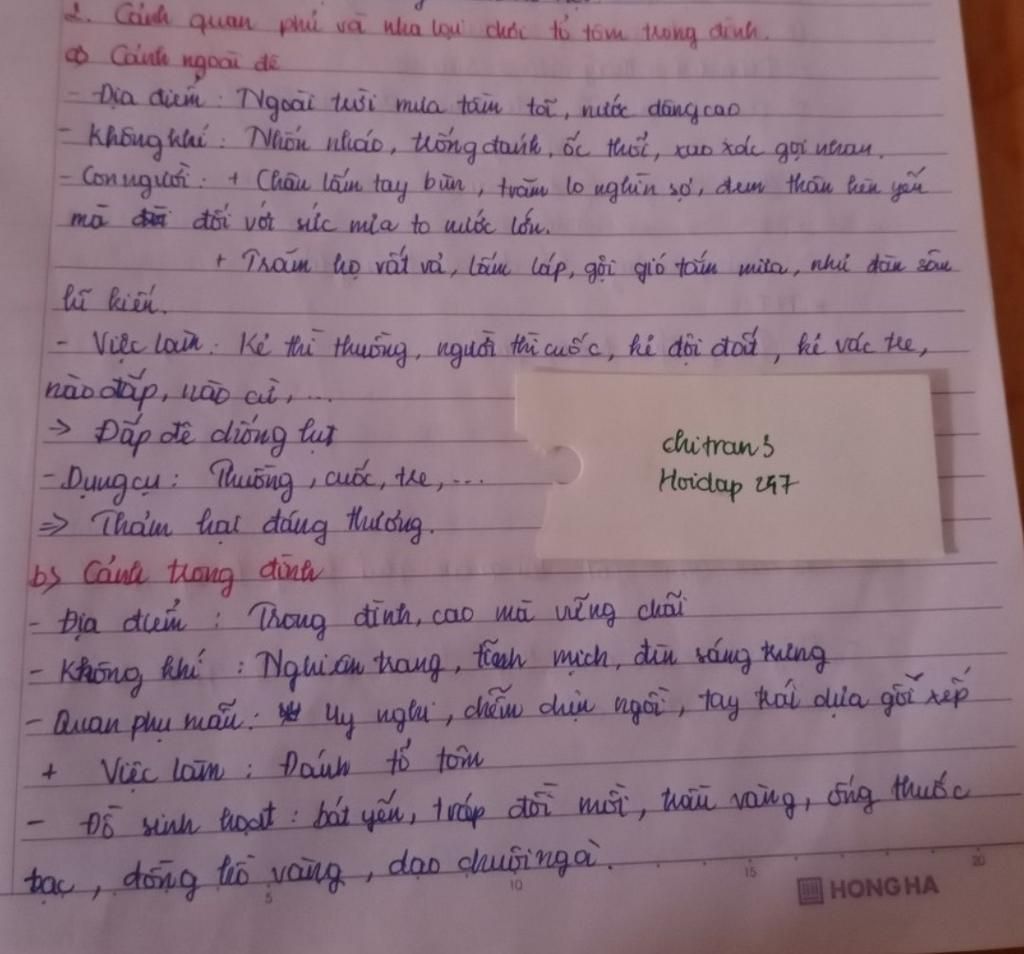 2. Cảnh quan phủ và nha lại chơi tổ tôm trong đình.
a) Cảnh ngoài đê
- Địa điểm: Ngoài trời mưa tầm tã, nước dâng cao
- Không khí: Nhốn nháo, trống đánh, ốc thổi, xao xác gọi nhau.
- Con người: + Chân lấm tay bùn, trăm lo nghìn sợ, đem thân hèn yếu
mà đối với sức mưa to nước lớn.
+ Trăm họ vất vả, lấm láp, gội gió tắm mưa, như đàn sâu
lũ kiến.
- Việc làm: Kẻ thì thuổng, người thì cuốc, kẻ đội đất, kẻ vác tre,
nào đắp, nào cừ,...
→ Đắp đê chống lụt
- Dụng cụ: Thuổng, cuốc, tre,...
⇒ Thảm hại đáng thương.
chitran3
Hoidap 247
b) Cảnh trong đình
- Địa điểm: Trong đình, cao mà vững chãi
- Không khí: Nghiêm trang, tĩnh mịch, đèn sáng trưng
- Quan phụ mẫu: Uy nghi, chễm chện ngồi, tay trái dựa gối xếp
+ Việc làm: Đánh tổ tôm
- Đồ sinh hoạt: bát yến, tráp đồi mồi, trầu vàng, ống thuốc
bạc, đồng hồ vàng, dao chuôi ngà.
5 10 15 20
HONG HA